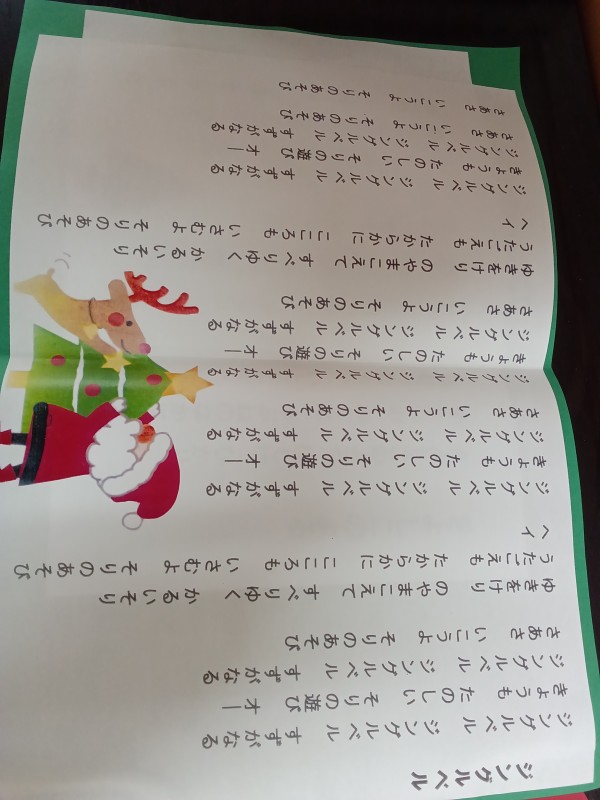 ジングルベル
ジングルベル ジングルベル すずがなる
きょうも たのしい そりの遊び オー
ジングルベル ジングルベル すずがなる
さあさ いこうよ そりのあそび
ゆきをけり のやまこえて すべりゆく かるいそり
うたごえも たからかに こころも いさむよ そりのあそび
ヘイ
ジングルベル ジングルベル すずがなる
きょうも たのしい そりの遊び オー
ジングルベル ジングルベル すずがなる
さあさ いこうよ そりのあそび
ジングルベル ジングルベル すずがなる
きょうも たのしい そりの遊び オー
ジングルベル ジングルベル すずがなる
さあさ いこうよ そりのあそび
ゆきをけり のやまこえて すべりゆく かるいそり
うたごえも たからかに こころも いさむよ そりのあそび
ヘイ
ジングルベル ジングルベル すずがなる
きょうも たのしい そりの遊び オー
ジングルベル ジングルベル すずがなる
さあさ いこうよ そりのあそび
さあさ いこうよ そりのあそび